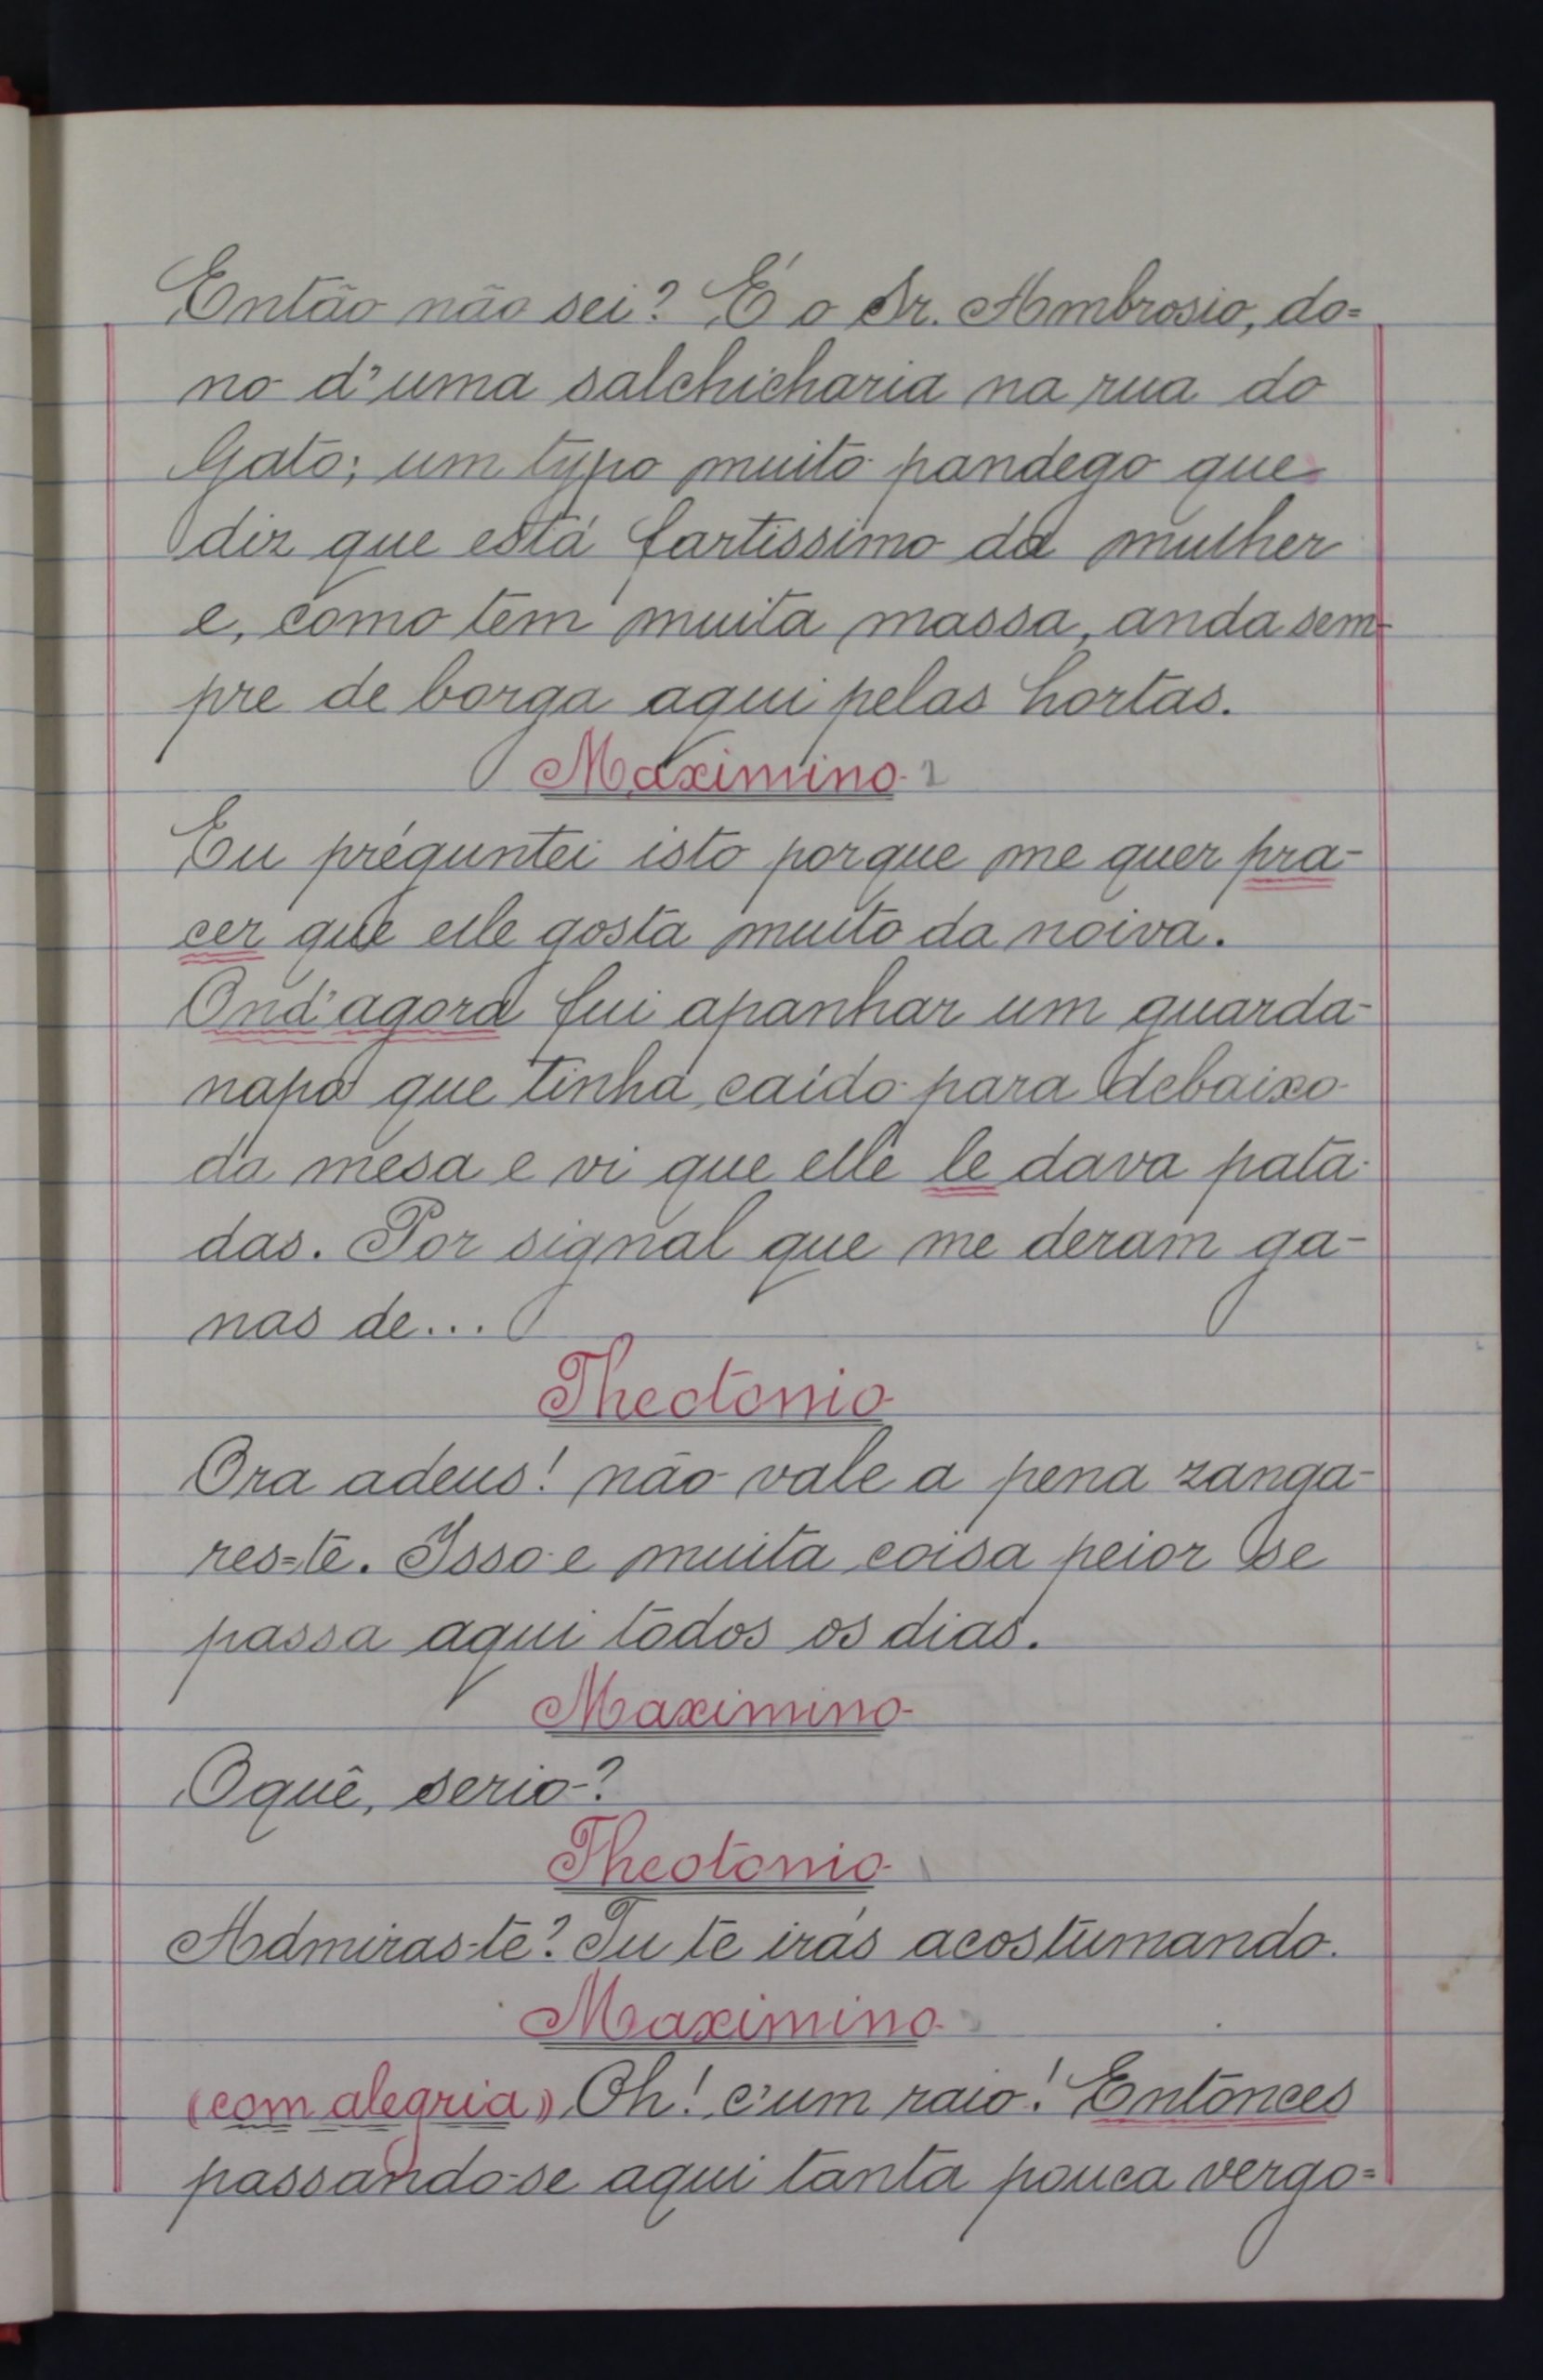 Então não sei? É o Sr. Ambrosio, do=
no d'uma salchicharia na rua do
Gato; um typo muito pandego que
diz que está fartissimo da mulher
e, como tem muita massa, anda sem-
pre de borga aqui pelas hortas.
Maximino
Eu préguntei isto porque me quer pra-
cer que elle gosta muito da noiva.
Ond'agora fui apanhar um guarda-
napo que tinha caído para debaixo
da mesa e vi que elle le dava pata-
das. Por signal que me deram ga-
nas de...
Theotonio
Ora adeus! não vale a pena zanga-
res=te. Isso e muita coisa peior se
passa aqui todos os dias.
Maximino
Oquê, serio?
Theotonio
Admiras-te? Tu te irás acostumando.
Maximino
(com alegria) Oh! c'um raio! Entonces
passando-se aqui tanta pouca vergo=